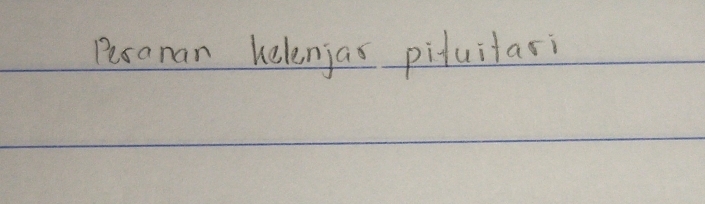 Peranan kelenjar pituitari